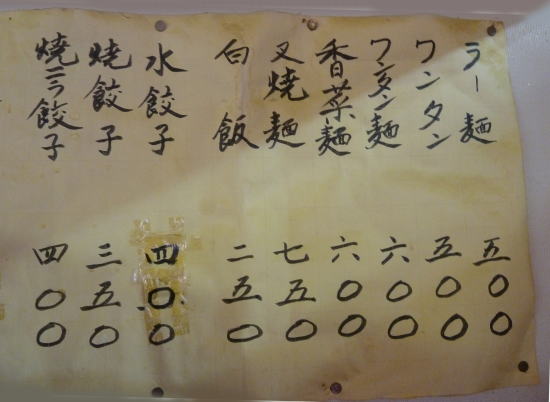 ラー麺 五〇〇
ワンタン 五〇〇
ワンタン麺 六〇〇
香菜麺 六〇〇
叉焼麺 七五〇
白飯 二五〇
水餃子 四〇〇
焼餃子 三五〇
焼ニラ餃子 四〇〇